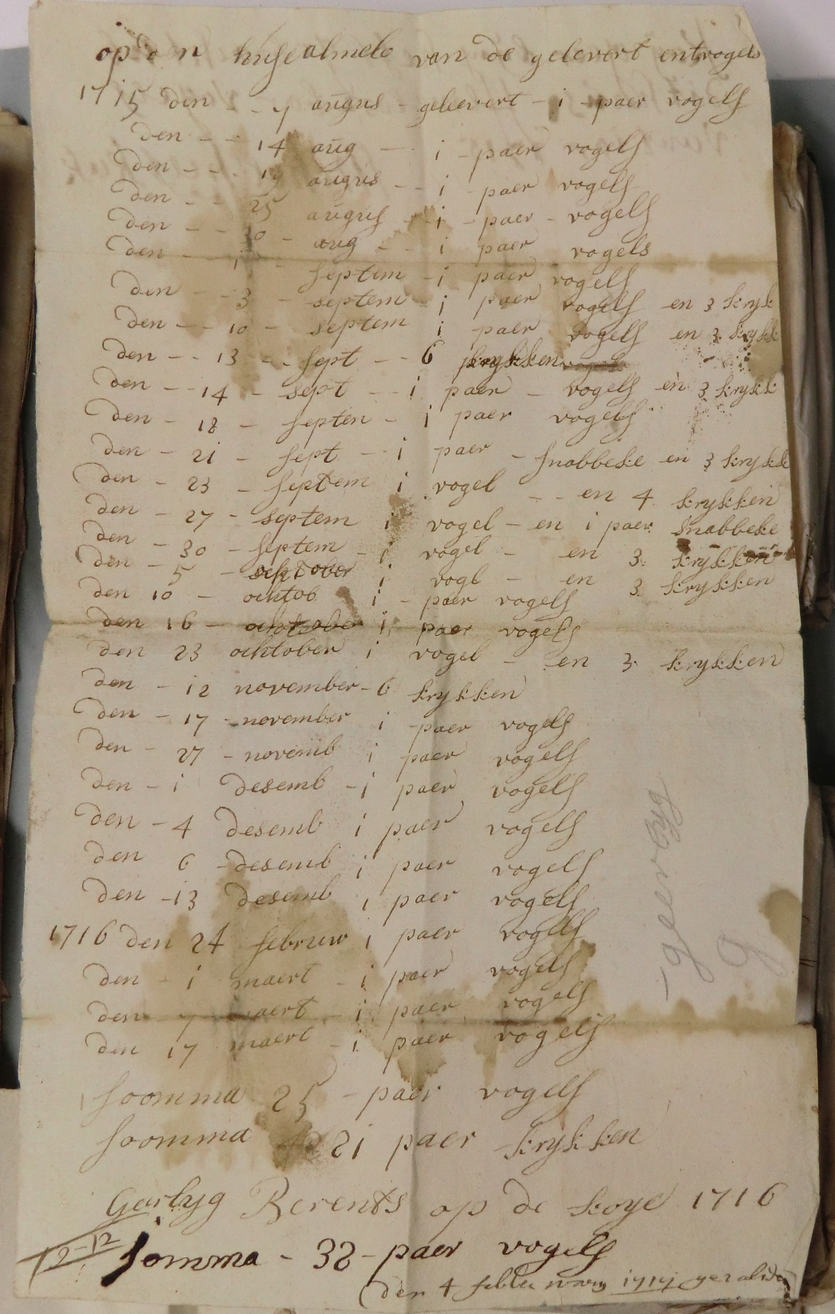 op d n huse almelo van de gelevert entvogels
1715 den - - 7 augus - gelievert - i - paer vogels
den - - 14 aug - - i - paer vogels
den - - - 19 augus - - i paer vogels
den - - 25 augus - i - paer - vogels
den - - 30 - aug - - i paer vogels
den - - 1 - septem - i paer vogels
den - - 3 - septem i paer vogels en 3 kryk
den - - 10 - septem i paer vogels en 3 krykk
den - - 13 - - sept - - 6 krykken
den - - 14 - sept - - i paer - vogels en 3 krykk
den - - 18 - septen - i paer vogels
den - 21 - sept - - i paer - snabbeke en 3 krykk
den - 23 - septem i vogel - - en 4 krykken
den - 27 - septem i vogel - en i paer snabbeke
den - 30 - septem - i vogel - en 3 krykken
den - 5 - ochtober i vogl - en 3 krykken
den 10 - ochtob i - paer vogels
den - 16 - ochtober i paer vogels
den 23 ochtober i vogel - en 3 krykken
den - 12 november - 6 krykken
den - 17 - november i - paer vogels
den - 27 - novemb i paer vogels
den - i desemb - i paer vogels
den - 4 desemb i paer vogels
den 6 - desemb i paer vogels
den - 13 desemb i paer vogels
1716 den 24 februw i paer vogels
den - i maert - i paer vogels
den - 7 maert - i paer vogels
den 17 maert - i paer vogels
soomma 25 - paer vogels
soomma 21 paer krykken
Garlyg Berents op de koye 1716
12-12 somma - 32 - paer vogels
den 4
geerlyg
g